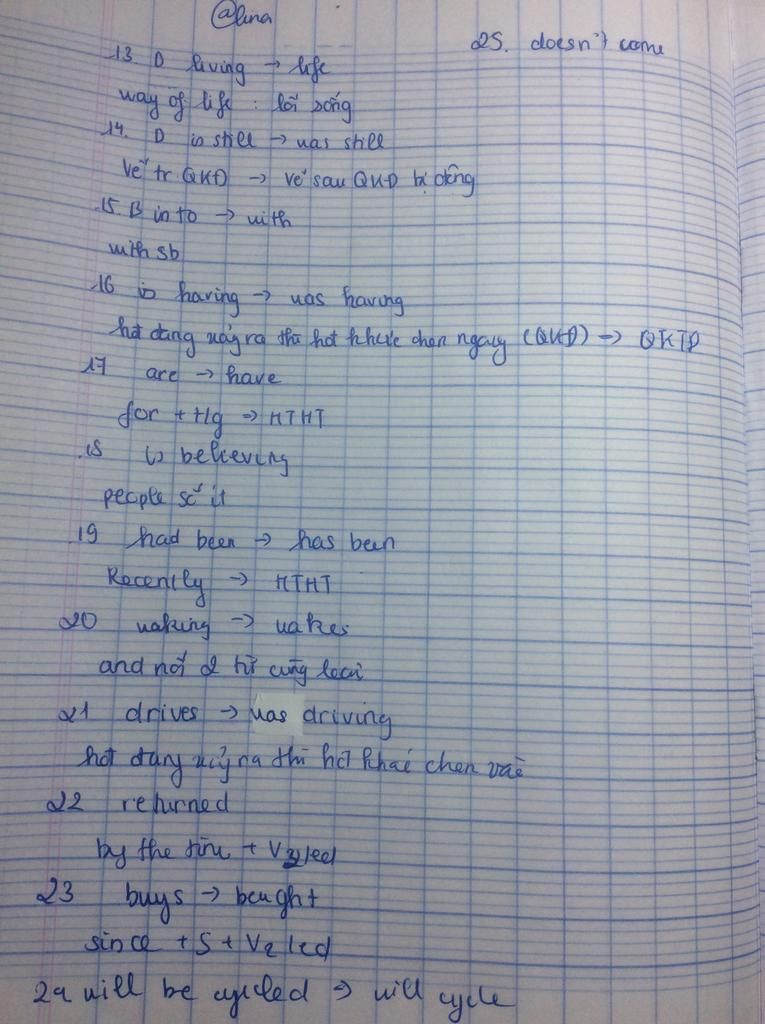 @lina
25. doesn't come
13 D living → life
way of life : lối sống
14. D is still → was still
Vế tr QKĐ → vế sau QKĐ bị động
15. B into → with
with sb
16 is having → was having
hđ đang xảy ra thì hđ khác chen ngang (QKĐ) → QKTD
17 are → have
for + tg → HTHT
18 is believing
people số ít
19 had been → has been
Recently → HTHT
20 waking → wakes
and nối 2 từ cùng loại
21 drives → was driving
hđ đang xảy ra thì hđ khác chen vào
22 returned
by the time + V2/ed
23 buys → bought
since + S + V2/ed
24 will be cycled → will cycle